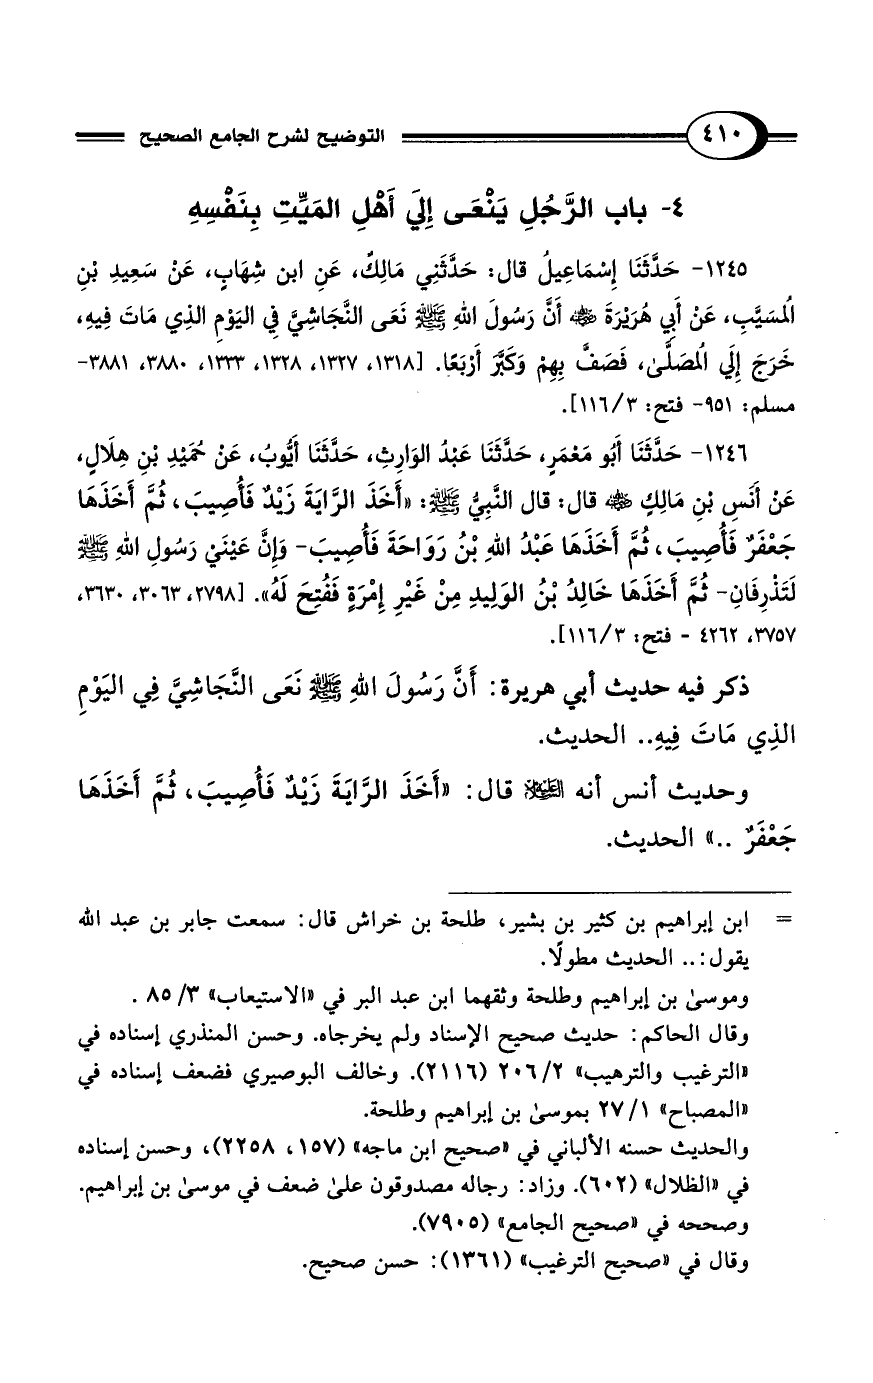 ٤١٠ التوضيح لشرح الجامع الصحيح
٤- باب الرَّجُلِ يَنْعَى إِلَي أَهْلِ المَيِّتِ بِنَفْسِهِ
١٢٤٥- حَدَّثَنَا إِسْمَاعِيلُ قال: حَدَّثَنِي مَالِكٌ، عَنِ ابن شِهَابٍ، عَنْ سَعِيدِ بْنِ
المُسَيَّبِ، عَنْ أَبِي هُرَيْرَةَ رضي الله عنه أَنَّ رَسُولَ اللهِ ﷺ نَعَى النَّجَاشِيَّ فِي اليَوْمِ الذِي مَاتَ فِيهِ،
خَرَجَ إِلَي المُصَلَّىٰ، فَصَفَّ بِهِمْ وَكَبَّرَ أَرْبَعًا. [١٣١٨، ١٣٢٧، ١٣٢٨، ١٣٣٣، ٣٨٨٠، ٣٨٨١-
مسلم: ٩٥١- فتح: ٣/ ١١٦].
١٢٤٦- حَدَّثَنَا أَبُو مَعْمَرٍ، حَدَّثَنَا عَبْدُ الوَارِثِ، حَدَّثَنَا أَيُّوبُ، عَنْ حُمَيْدِ بْنِ هِلَالٍ،
عَنْ أَنَسِ بْنِ مَالِكٍ رضي الله عنه قال: قال النَّبِيُّ ﷺ: «أَخَذَ الرَّايَةَ زَيْدٌ فَأُصِيبَ، ثُمَّ أَخَذَهَا
جَعْفَرٌ فَأُصِيبَ، ثُمَّ أَخَذَهَا عَبْدُ اللهِ بْنُ رَوَاحَةَ فَأُصِيبَ- وَإِنَّ عَيْنَيْ رَسُولِ اللهِ ﷺ
لَتَذْرِفَانِ- ثُمَّ أَخَذَهَا خَالِدُ بْنُ الوَلِيدِ مِنْ غَيْرِ إِمْرَةٍ فَفُتِحَ لَهُ». [٢٧٩٨، ٣٠٦٣، ٣٦٣٠،
٣٧٥٧، ٤٢٦٢ - فتح: ٣/ ١١٦].
ذكر فيه حديث أبي هريرة: أَنَّ رَسُولَ اللهِ ﷺ نَعَى النَّجَاشِيَّ فِي اليَوْمِ
الذِي مَاتَ فِيهِ.. الحديث.
وحديث أنس أنه عليه السلام قال: «أَخَذَ الرَّايَةَ زَيْدٌ فَأُصِيبَ، ثُمَّ أَخَذَهَا
جَعْفَرٌ ..» الحديث.
= ابن إبراهيم بن كثير بن بشير، طلحة بن خراش قال: سمعت جابر بن عبد الله
يقول:.. الحديث مطولًا.
وموسىٰ بن إبراهيم وطلحة وثقهما ابن عبد البر في «الاستيعاب» ٣/ ٨٥ .
وقال الحاكم: حديث صحيح الإسناد ولم يخرجاه. وحسن المنذري إسناده في
«الترغيب والترهيب» ٢/ ٢٠٦ (٢١١٦). وخالف البوصيري فضعف إسناده في
«المصباح» ١/ ٢٧ بموسىٰ بن إبراهيم وطلحة.
والحديث حسنه الألباني في «صحيح ابن ماجه» (١٥٧، ٢٢٥٨)، وحسن إسناده
في «الظلال» (٦٠٢). وزاد: رجاله مصدوقون علىٰ ضعف في موسىٰ بن إبراهيم.
وصححه في «صحيح الجامع» (٧٩٠٥).
وقال في «صحيح الترغيب» (١٣٦١): حسن صحيح.